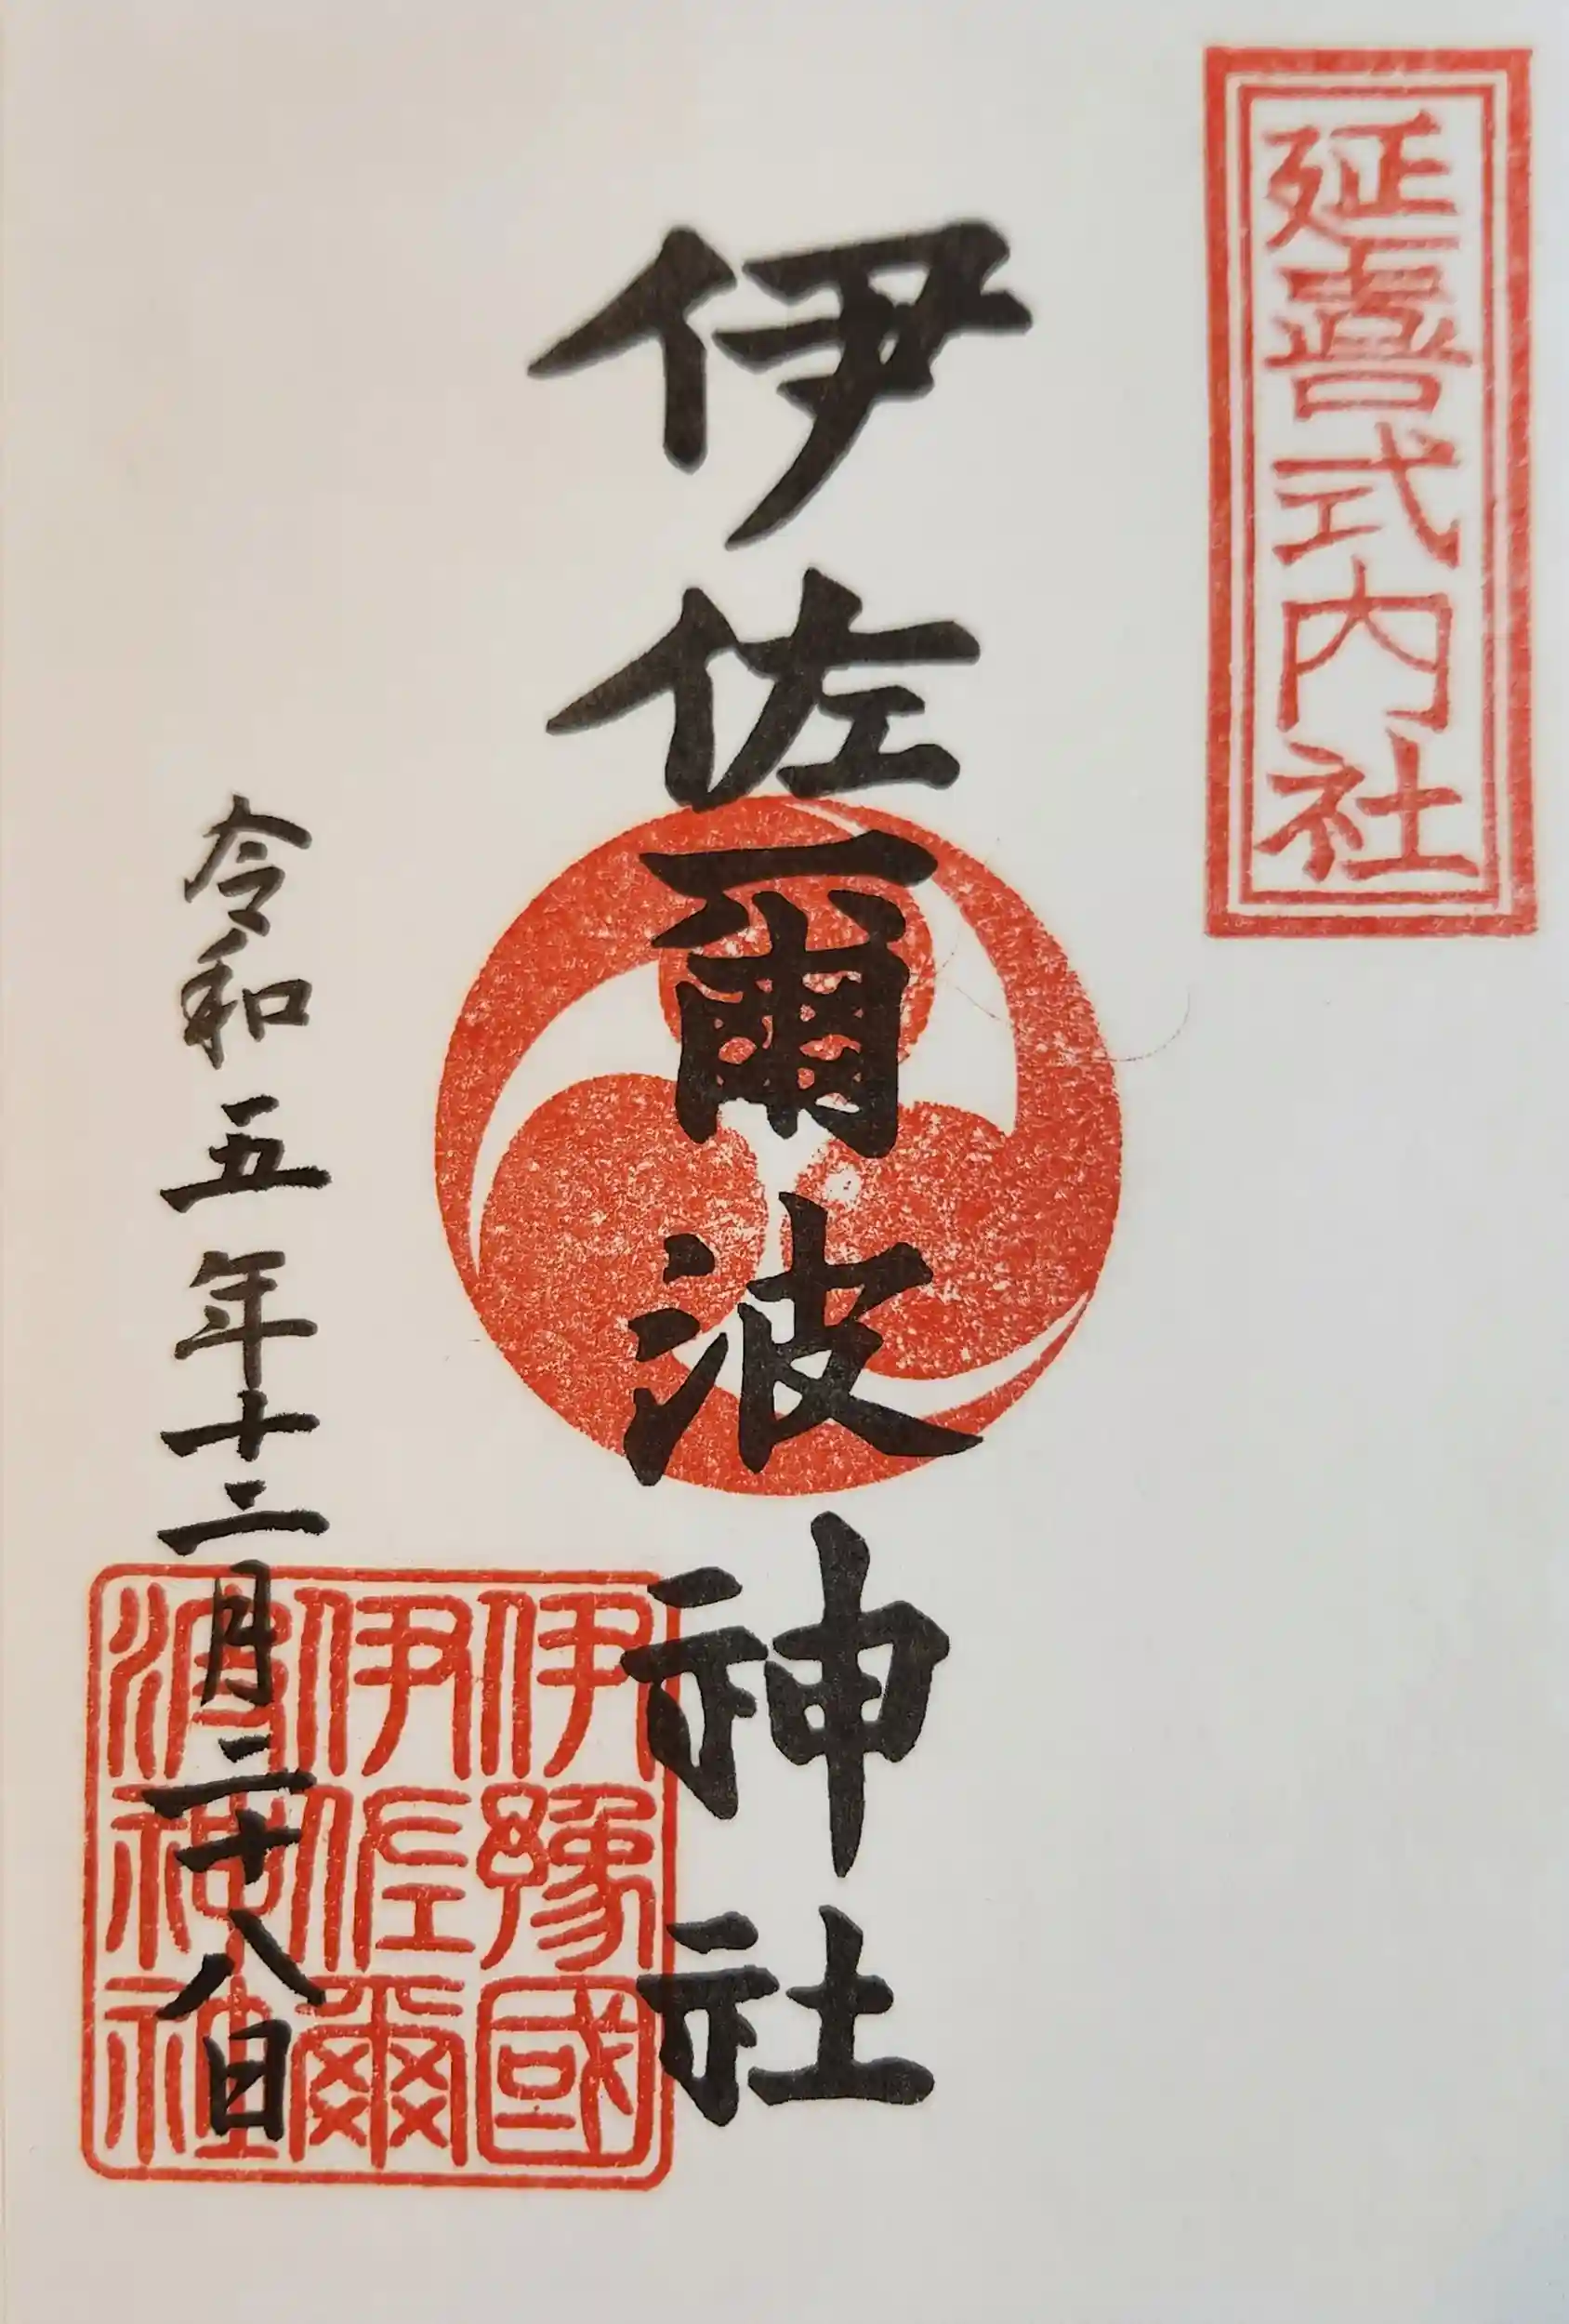 延喜式内社
伊佐爾波神社
令和五年十二月二十八日
伊豫國
伊佐爾
波神社